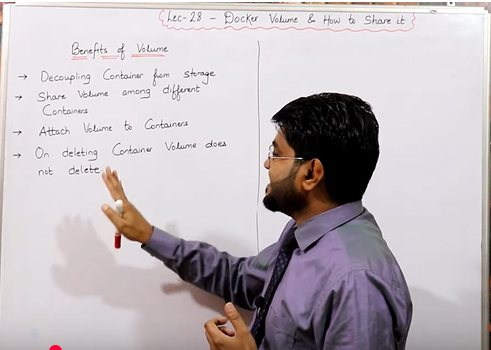 Lec-28 - Docker Volume & How to Share it
Benefits of Volume
→ Decoupling Container from storage
→ Share Volume among different
Containers
→ Attach Volume to Containers
→ On deleting Container Volume does
not delete